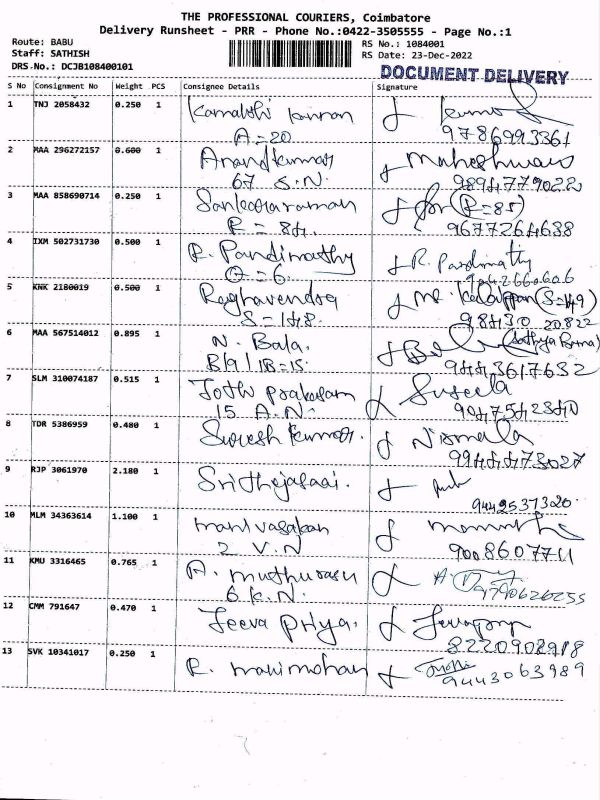 THE PROFESSIONAL COURIERS, Coimbatore
Delivery Runsheet - PRR - Phone No.:0422-3505555 - Page No.:1
Route: BABU
RS No.: 1084001
Staff: SATHISH
RS Date: 23-Dec-2022
DRS No.: DCJB108400101
DOCUMENT DELIVERY
S No Consignment No Weight PCS Consignee Details Signature
1 TNJ 2058432 0.250 1
A=20 9786993361
2 MAA 296272157 0.600 1 Anandkumar Maheshwari
67 S.N. 9894779022
3 MAA 858690714 0.250 1 Sankararaman for (R=85)
R = 84. 9677264638
4 IXM 502731730 0.500 1 R. Pandimathy R. Pandimathy
O = 6.
5 KNK 2180019 0.500 1 Raghavendra Mr. (S=149)
S = 148. 98430 20822
6 MAA 567514012 0.895 1 N. Bala.
B/9/1B=15. 9443617632
7 SLM 310074187 0.515 1 Jothi prakasam Suseela
15 A.N.
8 TDR 5386959 0.480 1 Suresh kumar. Nirmala
9944473027
9 RJP 3061970 2.180 1 Srithejasaai.
9442537320
10 MLM 34363614 1.100 1 manivasakan
2 V.N
11 KMU 3316465 0.765 1 A. muthurasu
6 K.N. 9790626255
12 CMM 791647 0.470 1 Jeeva priya.
8220902918
13 SVK 10341017 0.250 1 R. manimohan
9443063989